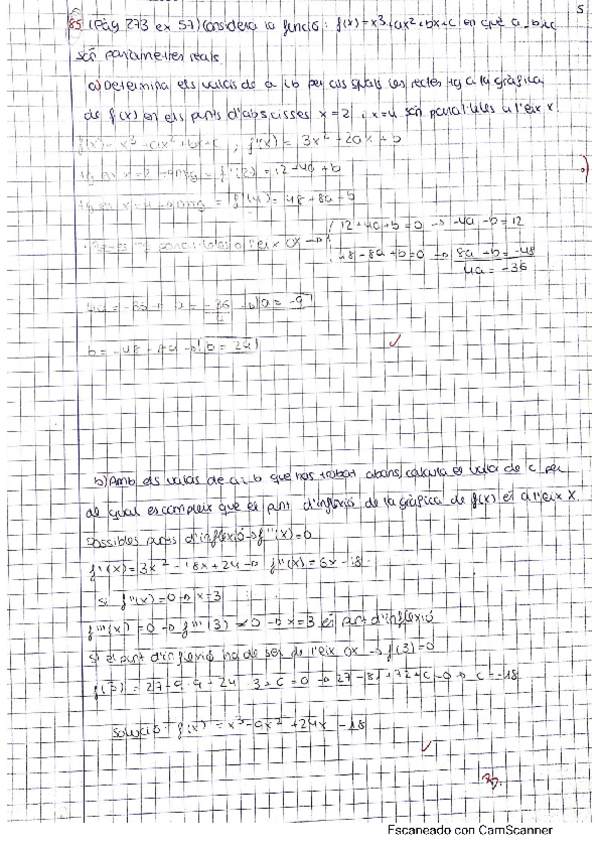 5
85 (Pàg 273 ex 57) Considera la funció: f(x)=x³+ax²+bx+c en què a, b i c
són paràmetres reals.
a) Determina els valors de a i b per als quals les rectes tg a la gràfica
de f(x) en els punts d'abscisses x=2 i x=4 són paral·leles a l'eix x
f(x)=x³+ax²+bx+c ; f'(x)= 3x²+2ax+b
tg en x=2 f'(2)=12+4a+b
tg en x=4 f'(4)=48+8a+b
12+4a+b=0 → -4a-b=12
48+8a+b=0 → 8a+b=-48
4a=-36
4a=-36 → a=-36/4 → a=-9
b=-48-8a → b=24
b) Amb els valors de a i b que has trobat abans, calcula el valor de c per
al qual es compleix que el punt d'inflexió de la gràfica de f(x) és a l'eix x.
Possibles punts d'inflexió → f''(x)=0
f'(x)=3x²-18x+24 → f''(x)=6x-18
si f''(x)=0 → x=3
f'''(x) ≠0 → f'''(3) ≠0 → x=3 és punt d'inflexió
si el punt d'inflexió ha de ser de l'eix OX → f(3)=0
f(3)=27-9·9+24·3+c=0 → 27-81+72+c=0 → c=-18
Solució: f(x)=x³-9x²+24x-18
Escaneado con CamScanner